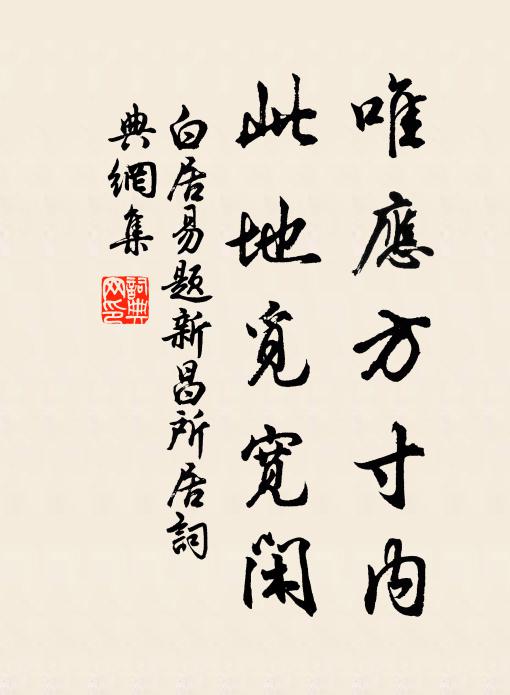 唯應方寸内
此地覓寬閑
白居易題新昌所居詞
典網集
詞典網印